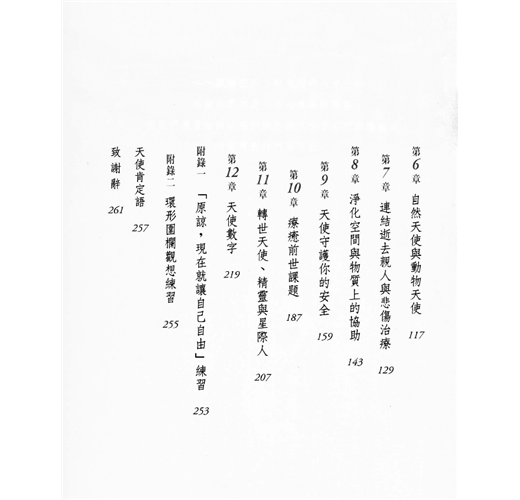 第6章 自然天使與動物天使 117
第7章 連結逝去親人與悲傷治療 129
第8章 淨化空間與物質上的協助 143
第9章 天使守護你的安全 159
第10章 療癒前世課題 187
第11章 轉世天使、精靈與星際人 207
第12章 天使數字 219
附錄一 「原諒，現在就讓自己自由」練習 253
附錄二 環形圍欄觀想練習 255
天使肯定語 257
致謝辭 261